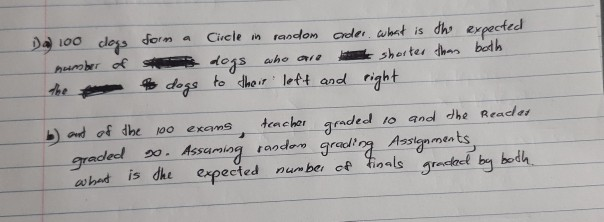 1) a) 100 dogs form a Circle in random order. what is the expected
number of dogs who are shorter than both
the dogs to their left and right
b) out of the 100 exams, teacher graded 10 and the Reader
graded 90. Assuming random grading Assignments,
what is the expected number of finals graded by both.